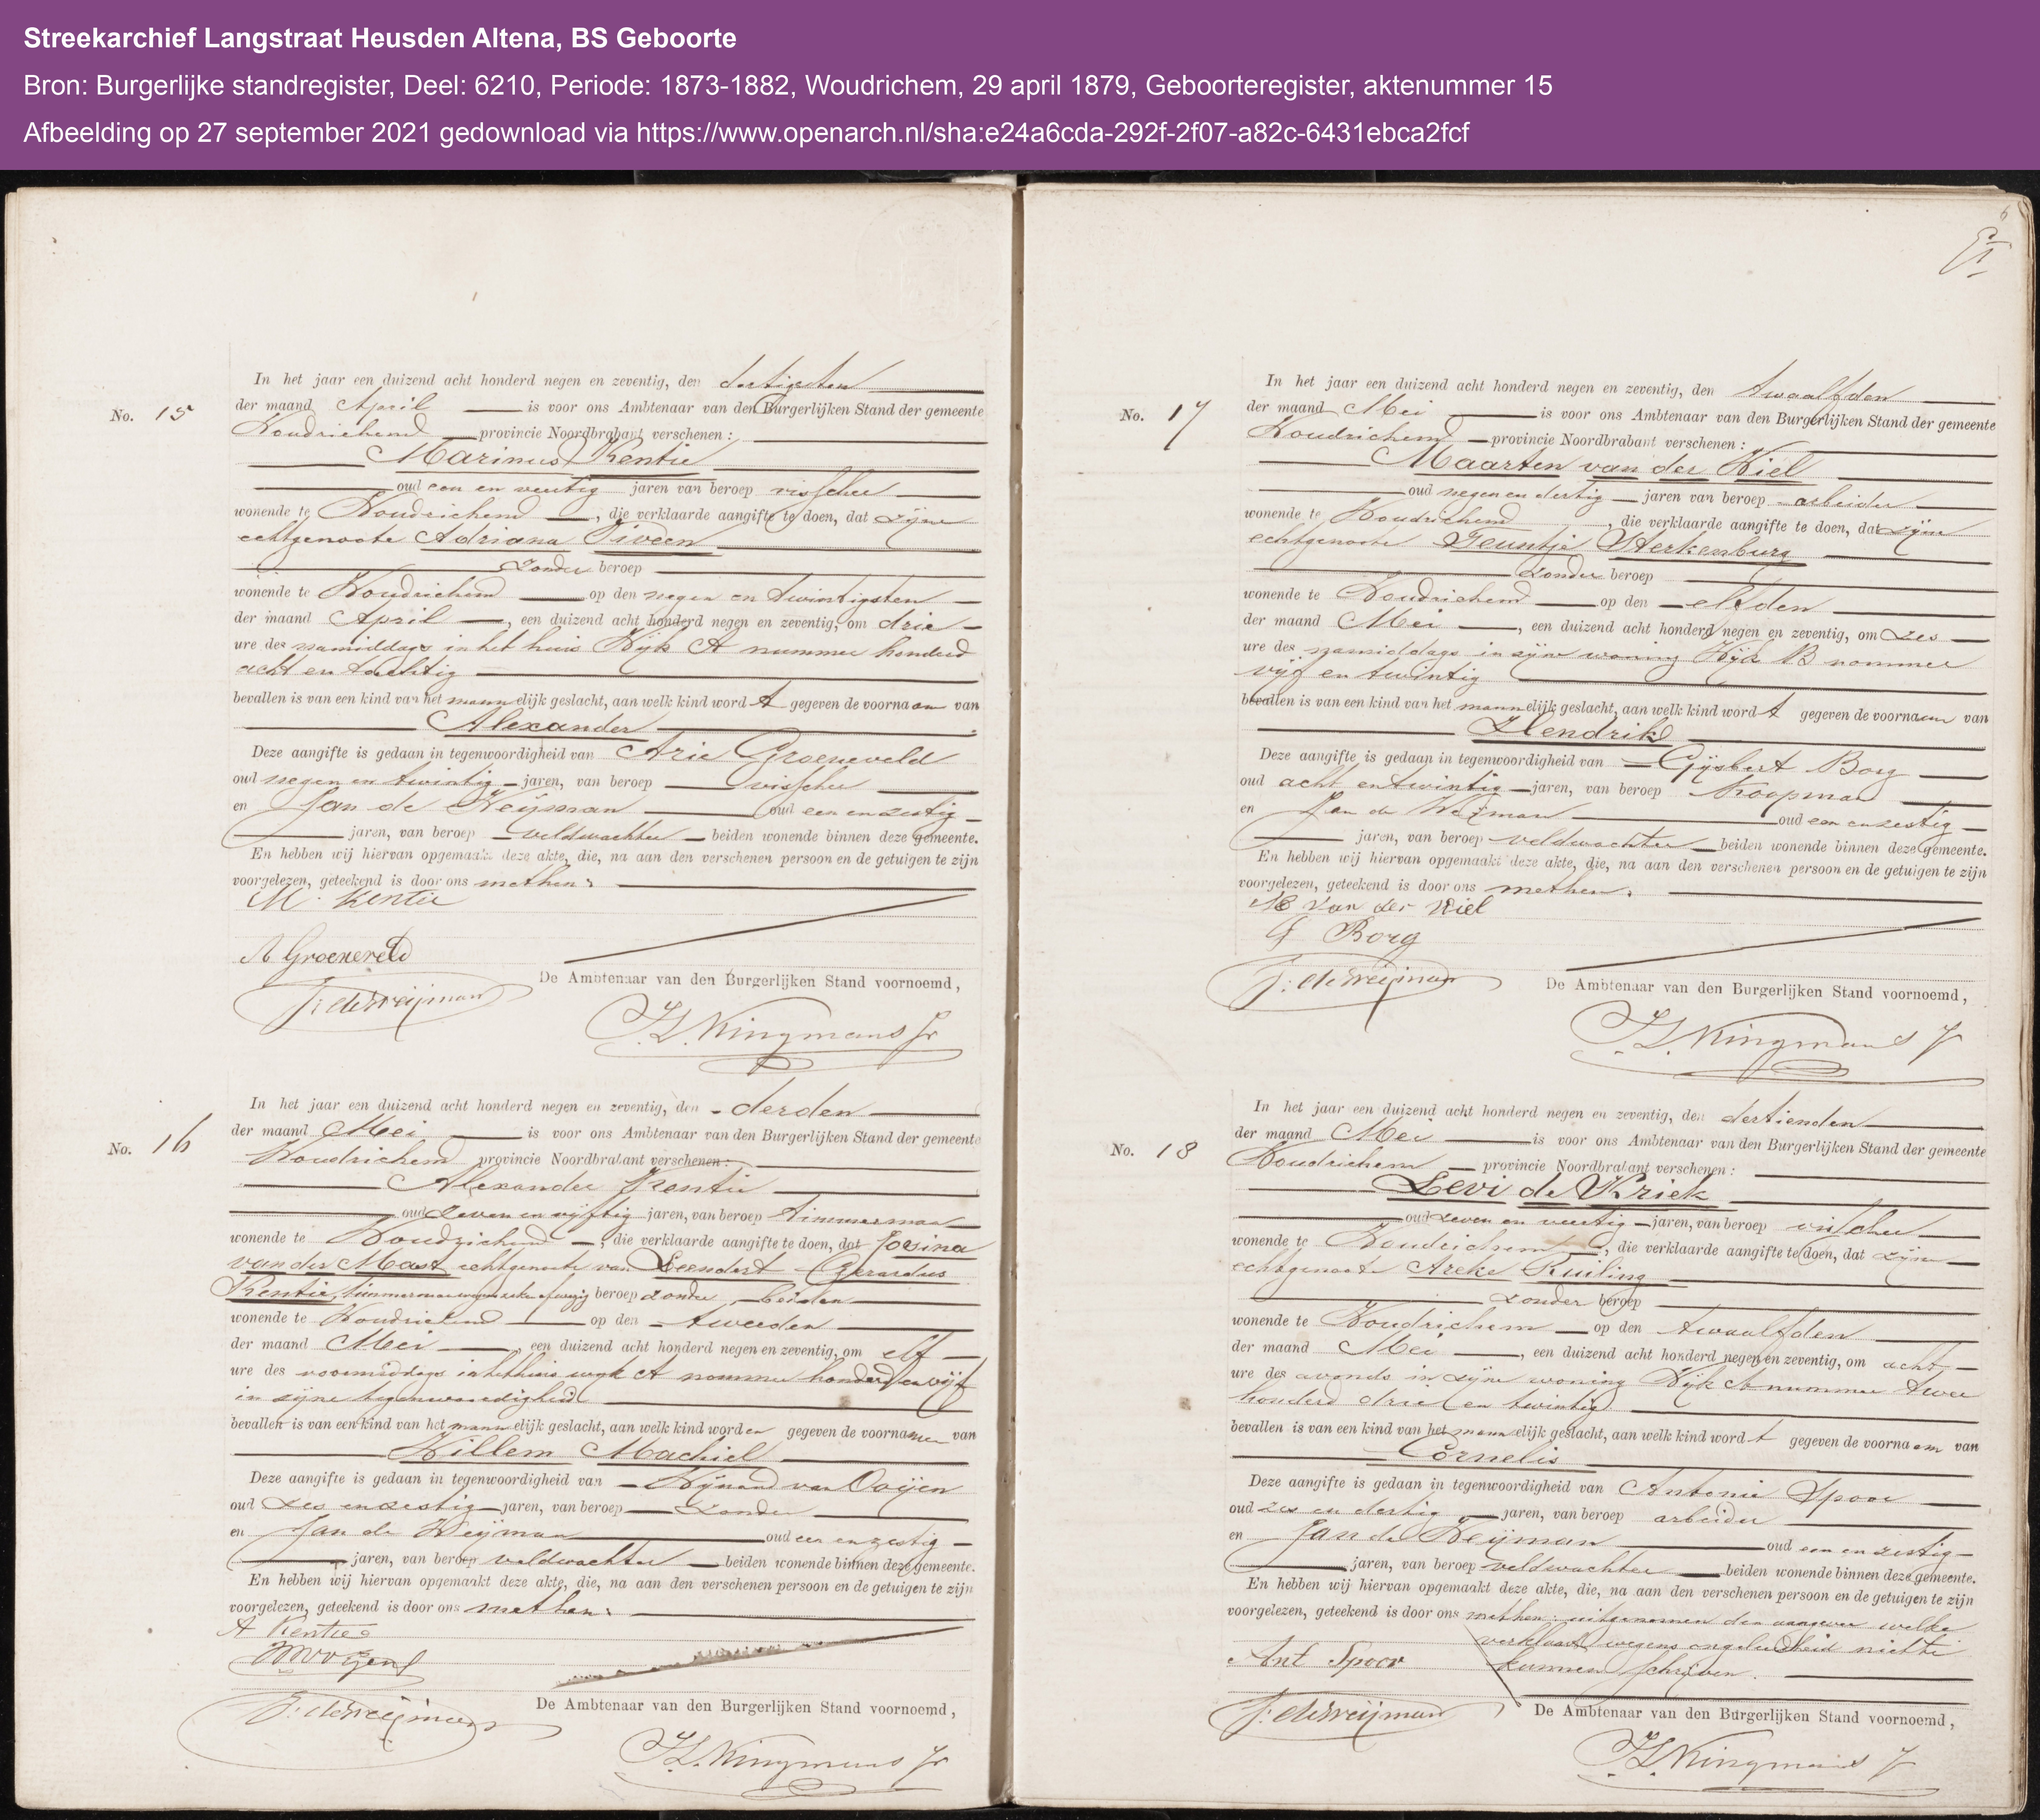 Streekarchief Langstraat Heusden Altena, BS Geboorte
Bron: Burgerlijke standregister, Deel: 6210, Periode: 1873-1882, Woudrichem, 29 april 1879, Geboorteregister, aktenummer 15
Afbeelding op 27 september 2021 gedownload via https://www.openarch.nl/sha:e24a6cda-292f-2f07-a82c-6431ebca2fcf
In het jaar een duizend acht honderd negen en zeventig, den dertigsten
No. 15
der maand April is voor ons Ambtenaar van den Burgerlijken Stand der gemeente
Woudrichem provincie Noordbrabant verschenen:
Marinus Kentie
oud een en veertig jaren van beroep visscher
wonende te Woudrichem, die verklaarde aangifte te doen, dat zijne
echtgenoote Adriana Piveen
zonder beroep
wonende te Woudrichem op den negen en twintigsten
der maand April, een duizend acht honderd negen en zeventig, om drie
ure des namiddags in het huis Wijk A nummer honderd
acht en tachtig
bevallen is van een kind van het mannelijk geslacht, aan welk kind wordt gegeven de voornaam van
Alexander
Deze aangifte is gedaan in tegenwoordigheid van Arie Groeneveld
oud negen en twintig jaren, van beroep visscher
en Jan de Weijman oud een en zestig
jaren, van beroep veldwachter beiden wonende binnen deze gemeente.
En hebben wij hiervan opgemaakt deze akte, die, na aan den verschenen persoon en de getuigen te zijn
voorgelezen, geteekend is door ons met hen.
M. Kentie
A Groeneveld
De Ambtenaar van den Burgerlijken Stand voornoemd,
J: de Weijman
Kingmans Jr
In het jaar een duizend acht honderd negen en zeventig, den derden
No. 16
der maand Mei is voor ons Ambtenaar van den Burgerlijken Stand der gemeente
Woudrichem provincie Noordbrabant verschenen:
Alexander Kentie
oud zeven en vijftig jaren, van beroep timmerman
wonende te Woudrichem, die verklaarde aangifte te doen, dat Josina
van der Mast echtgenoote van Leendert Gerardus
Kentie, timmerman beroep zonder beiden
wonende te Woudrichem op den tweeden
der maand Mei, een duizend acht honderd negen en zeventig, om elf
ure des voormiddags in het huis wijk A nummer honderd en vijf
in zijne tegenwoordigheid
bevallen is van een kind van het mannelijk geslacht, aan welk kind worden gegeven de voornamen van
Willem Machiel
Deze aangifte is gedaan in tegenwoordigheid van Wijnand van Ooijen
oud zes en zestig jaren, van beroep zonder
en Jan de Weijman oud een en zestig
jaren, van beroep veldwachter beiden wonende binnen deze gemeente.
En hebben wij hiervan opgemaakt deze akte, die, na aan den verschenen persoon en de getuigen te zijn
voorgelezen, geteekend is door ons met hen.
A Kentie
De Ambtenaar van den Burgerlijken Stand voornoemd,
J: de Weijman
Kingmans Jr
In het jaar een duizend acht honderd negen en zeventig, den twaalfden
No. 17
der maand Mei is voor ons Ambtenaar van den Burgerlijken Stand der gemeente
Woudrichem provincie Noordbrabant verschenen:
Maarten van der Wiel
oud negen en dertig jaren van beroep arbeider
wonende te Woudrichem, die verklaarde aangifte te doen, dat zijne
echtgenoote Teuntje Sterkenburg
zonder beroep
wonende te Woudrichem op den elfden
der maand Mei, een duizend acht honderd negen en zeventig, om zes
ure des namiddags in zijne woning Wijk B nommer
vijf en twintig
bevallen is van een kind van het mannelijk geslacht, aan welk kind wordt gegeven de voornaam van
Hendrik
Deze aangifte is gedaan in tegenwoordigheid van Gijsbert Borg
oud acht en twintig jaren, van beroep Koopman
en Jan de Weijman oud een en zestig
jaren, van beroep veldwachter beiden wonende binnen deze gemeente.
En hebben wij hiervan opgemaakt deze akte, die, na aan den verschenen persoon en de getuigen te zijn
voorgelezen, geteekend is door ons met hen.
M van der Wiel
G Borg
De Ambtenaar van den Burgerlijken Stand voornoemd,
J: de Weijman
Kingmans Jr
In het jaar een duizend acht honderd negen en zeventig, den dertienden
No. 18
der maand Mei is voor ons Ambtenaar van den Burgerlijken Stand der gemeente
Woudrichem provincie Noordbrabant verschenen:
Levi de Kriek
oud zeven en veertig jaren, van beroep visscher
wonende te Woudrichem, die verklaarde aangifte te doen, dat zijne
echtgenoote Areke Kuiling
zonder beroep
wonende te Woudrichem op den twaalfden
der maand Mei, een duizend acht honderd negen en zeventig, om acht
ure des avonds in zijne woning Wijk A nummer twee
honderd drie en twintig
bevallen is van een kind van het mannelijk geslacht, aan welk kind wordt gegeven de voornaam van
Cornelis
Deze aangifte is gedaan in tegenwoordigheid van Antonie Spoor
oud zes en dertig jaren, van beroep arbeider
en Jan de Weijman oud een en zestig
jaren, van beroep veldwachter beiden wonende binnen deze gemeente.
En hebben wij hiervan opgemaakt deze akte, die, na aan den verschenen persoon en de getuigen te zijn
voorgelezen, geteekend is door ons met hen: uitgenomen den aangever welke
verklaard wegens ongeleerdheid niet te
kunnen schrijven.
Ant Spoor
De Ambtenaar van den Burgerlijken Stand voornoemd,
J: de Weijman
Kingmans Jr